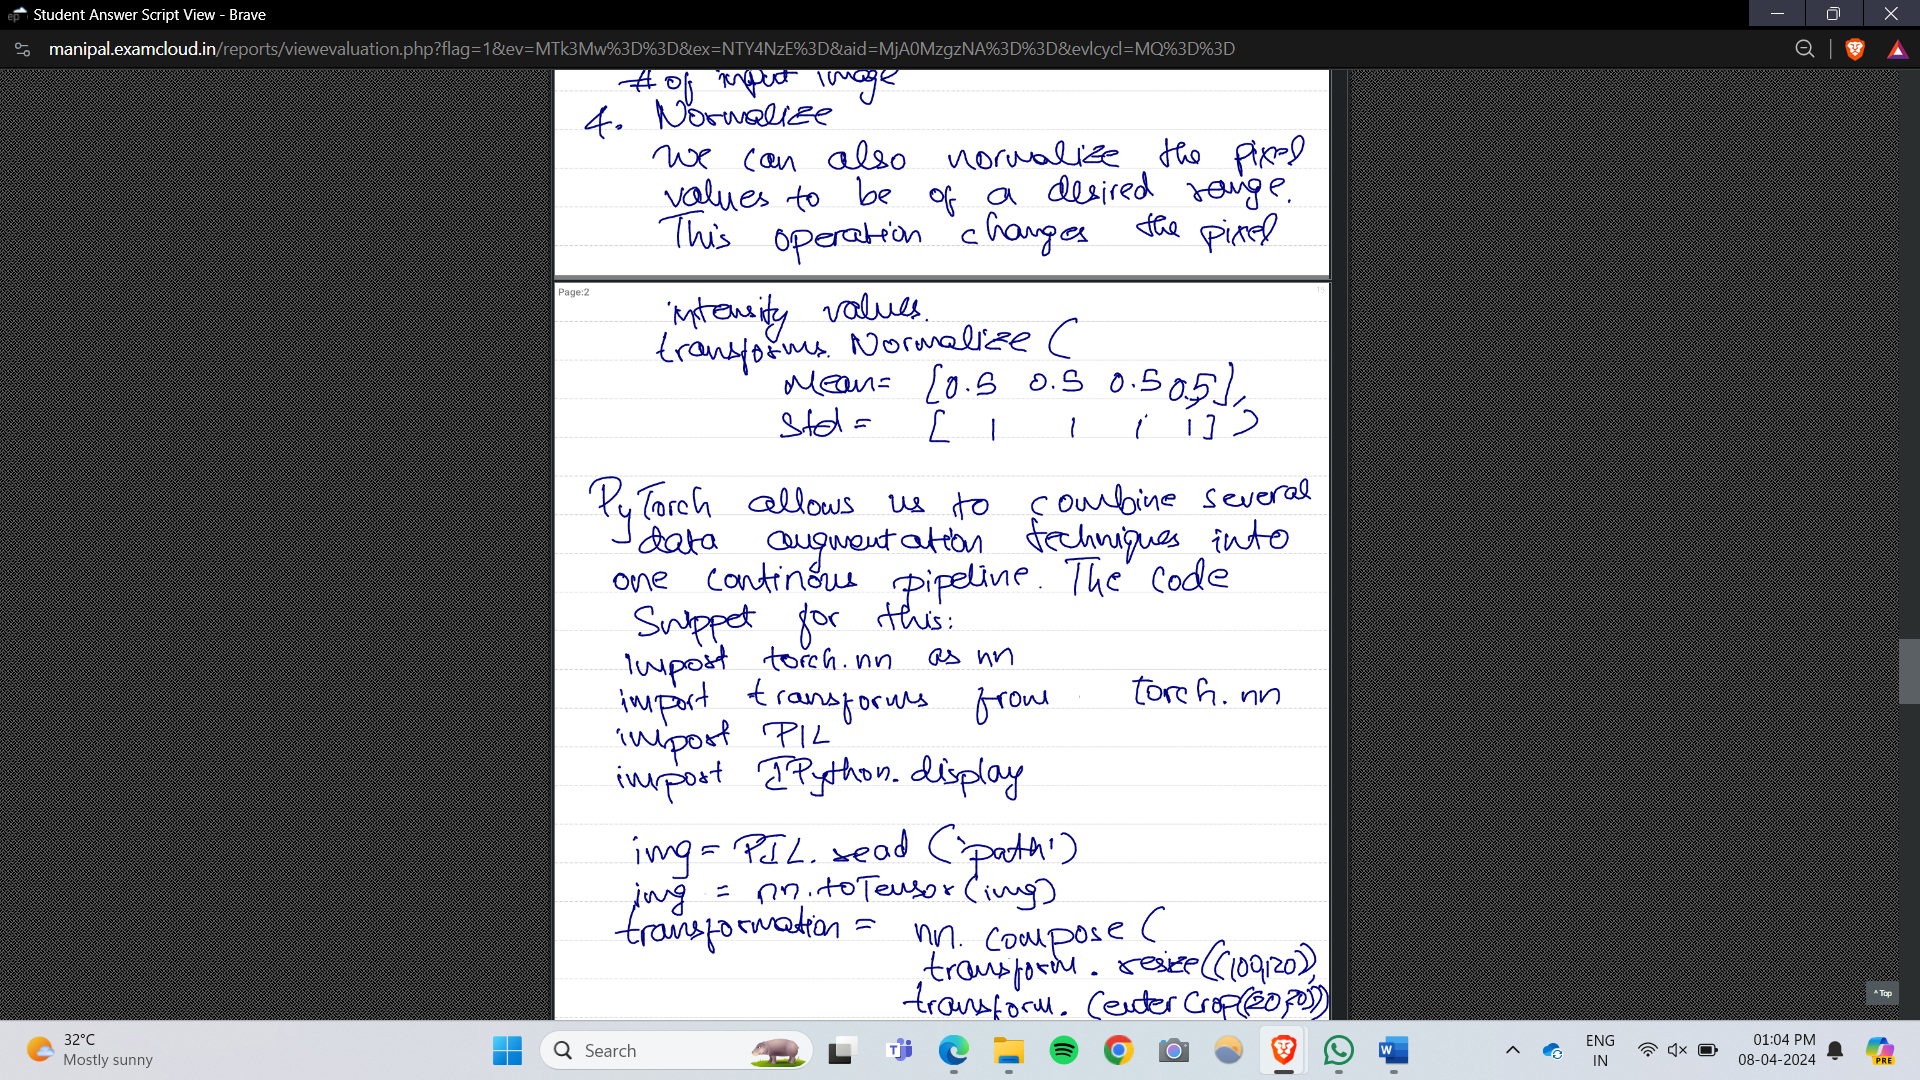 Student Answer Script View - Brave
manipal.examcloud.in/reports/viewevaluation.php?flag=1&ev=MTk3Mw%3D%3D&ex=NTY4NzE%3D&aid=MjA0MzgzNA%3D%3D&evlcycl=MQ%3D%3D
# of input image
4. Normalize
We can also normalize the pixel
values to be of a desired range.
This operation changes the pixel
Page:2
intensity values.
transforms. Normalize (
Mean= [0.5 0.5 0.5 0.5],
Std = [ 1 1 1 1] )
PyTorch allows us to combine several
data augmentation techniques into
one continous pipeline. The code
Snippet for this:
import torch.nn as nn
import transforms from torch.nn
import PIL
import IPython.display
img = PIL. read ('path')
img = nn.toTensor(img)
transformation = nn. compose (
transform. resize((100,120)),
transform. CenterCrop((20,20))
^ Top
32°C
Mostly sunny
Search
ENG
IN
01:04 PM
08-04-2024
PRE